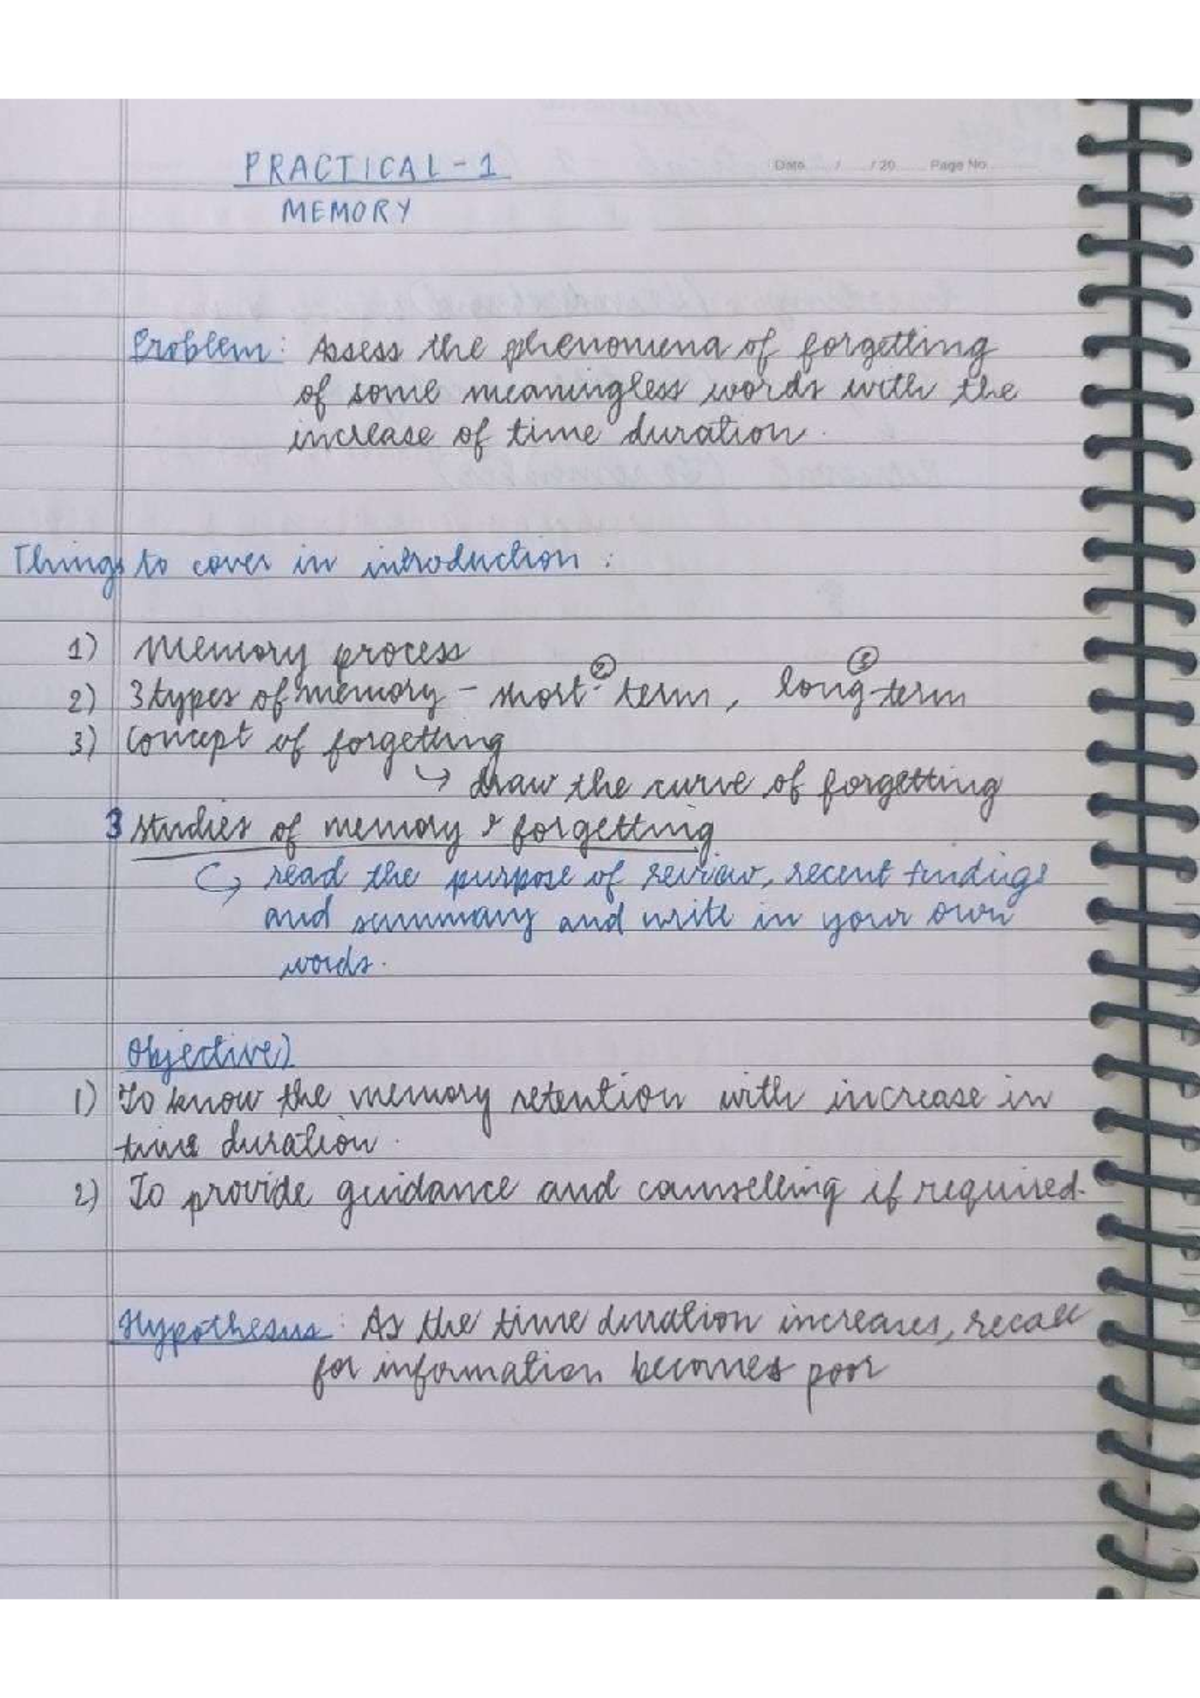 PRACTICAL-1
Date / /20 Page No
MEMORY
Problem: Assess the phenomena of forgetting
of some meaningless words with the
increase of time duration.
Things to cover in introduction:
1) Memory process
2) 3 types of memory - short-term, long-term
3) Concept of forgetting
↳ draw the curve of forgetting
3 studies of memory & forgetting
↳ read the purpose of review, recent findings
and summary and write in your own
words.
Objective)
1) To know the memory retention with increase in
time duration.
2) To provide guidance and counselling if required.
Hypothesis: As the time duration increases, recall
for information becomes poor